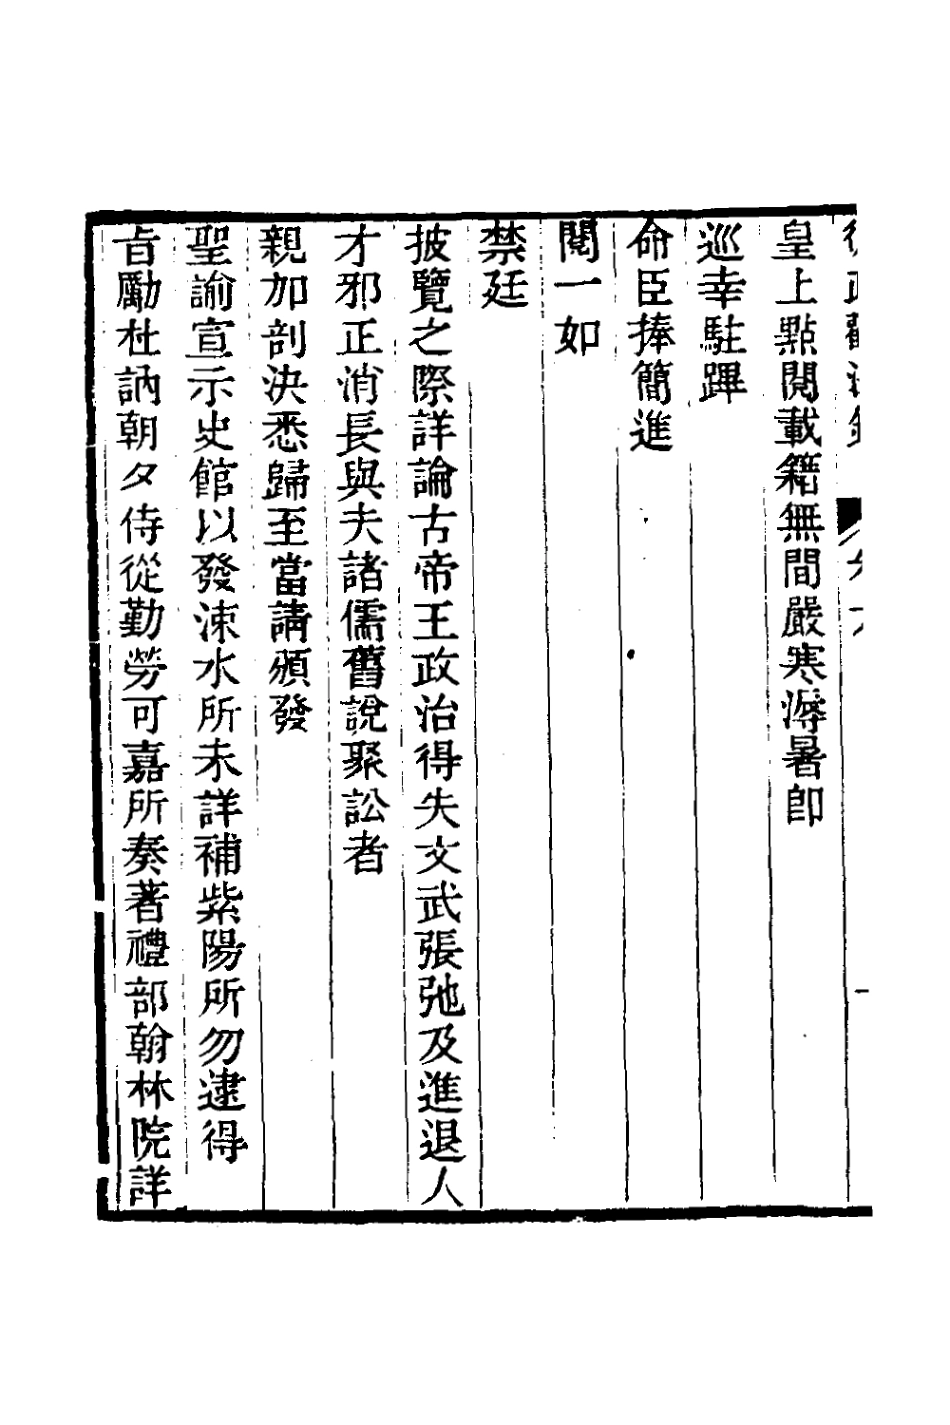 皇上點閱載籍無間嚴寒溽暑卽
巡幸駐蹕
命臣捧簡進
閱一如
禁廷
披覽之際詳論古帝王政治得失文武張弛及進退人
才邪正消長與夫諸儒舊說聚訟者
親加剖決悉歸至當請頒發
聖諭宣示史館以發涑水所未詳補紫陽所勿逮得
旨勵杜訥朝夕侍從勤勞可嘉所奏著禮部翰林院詳